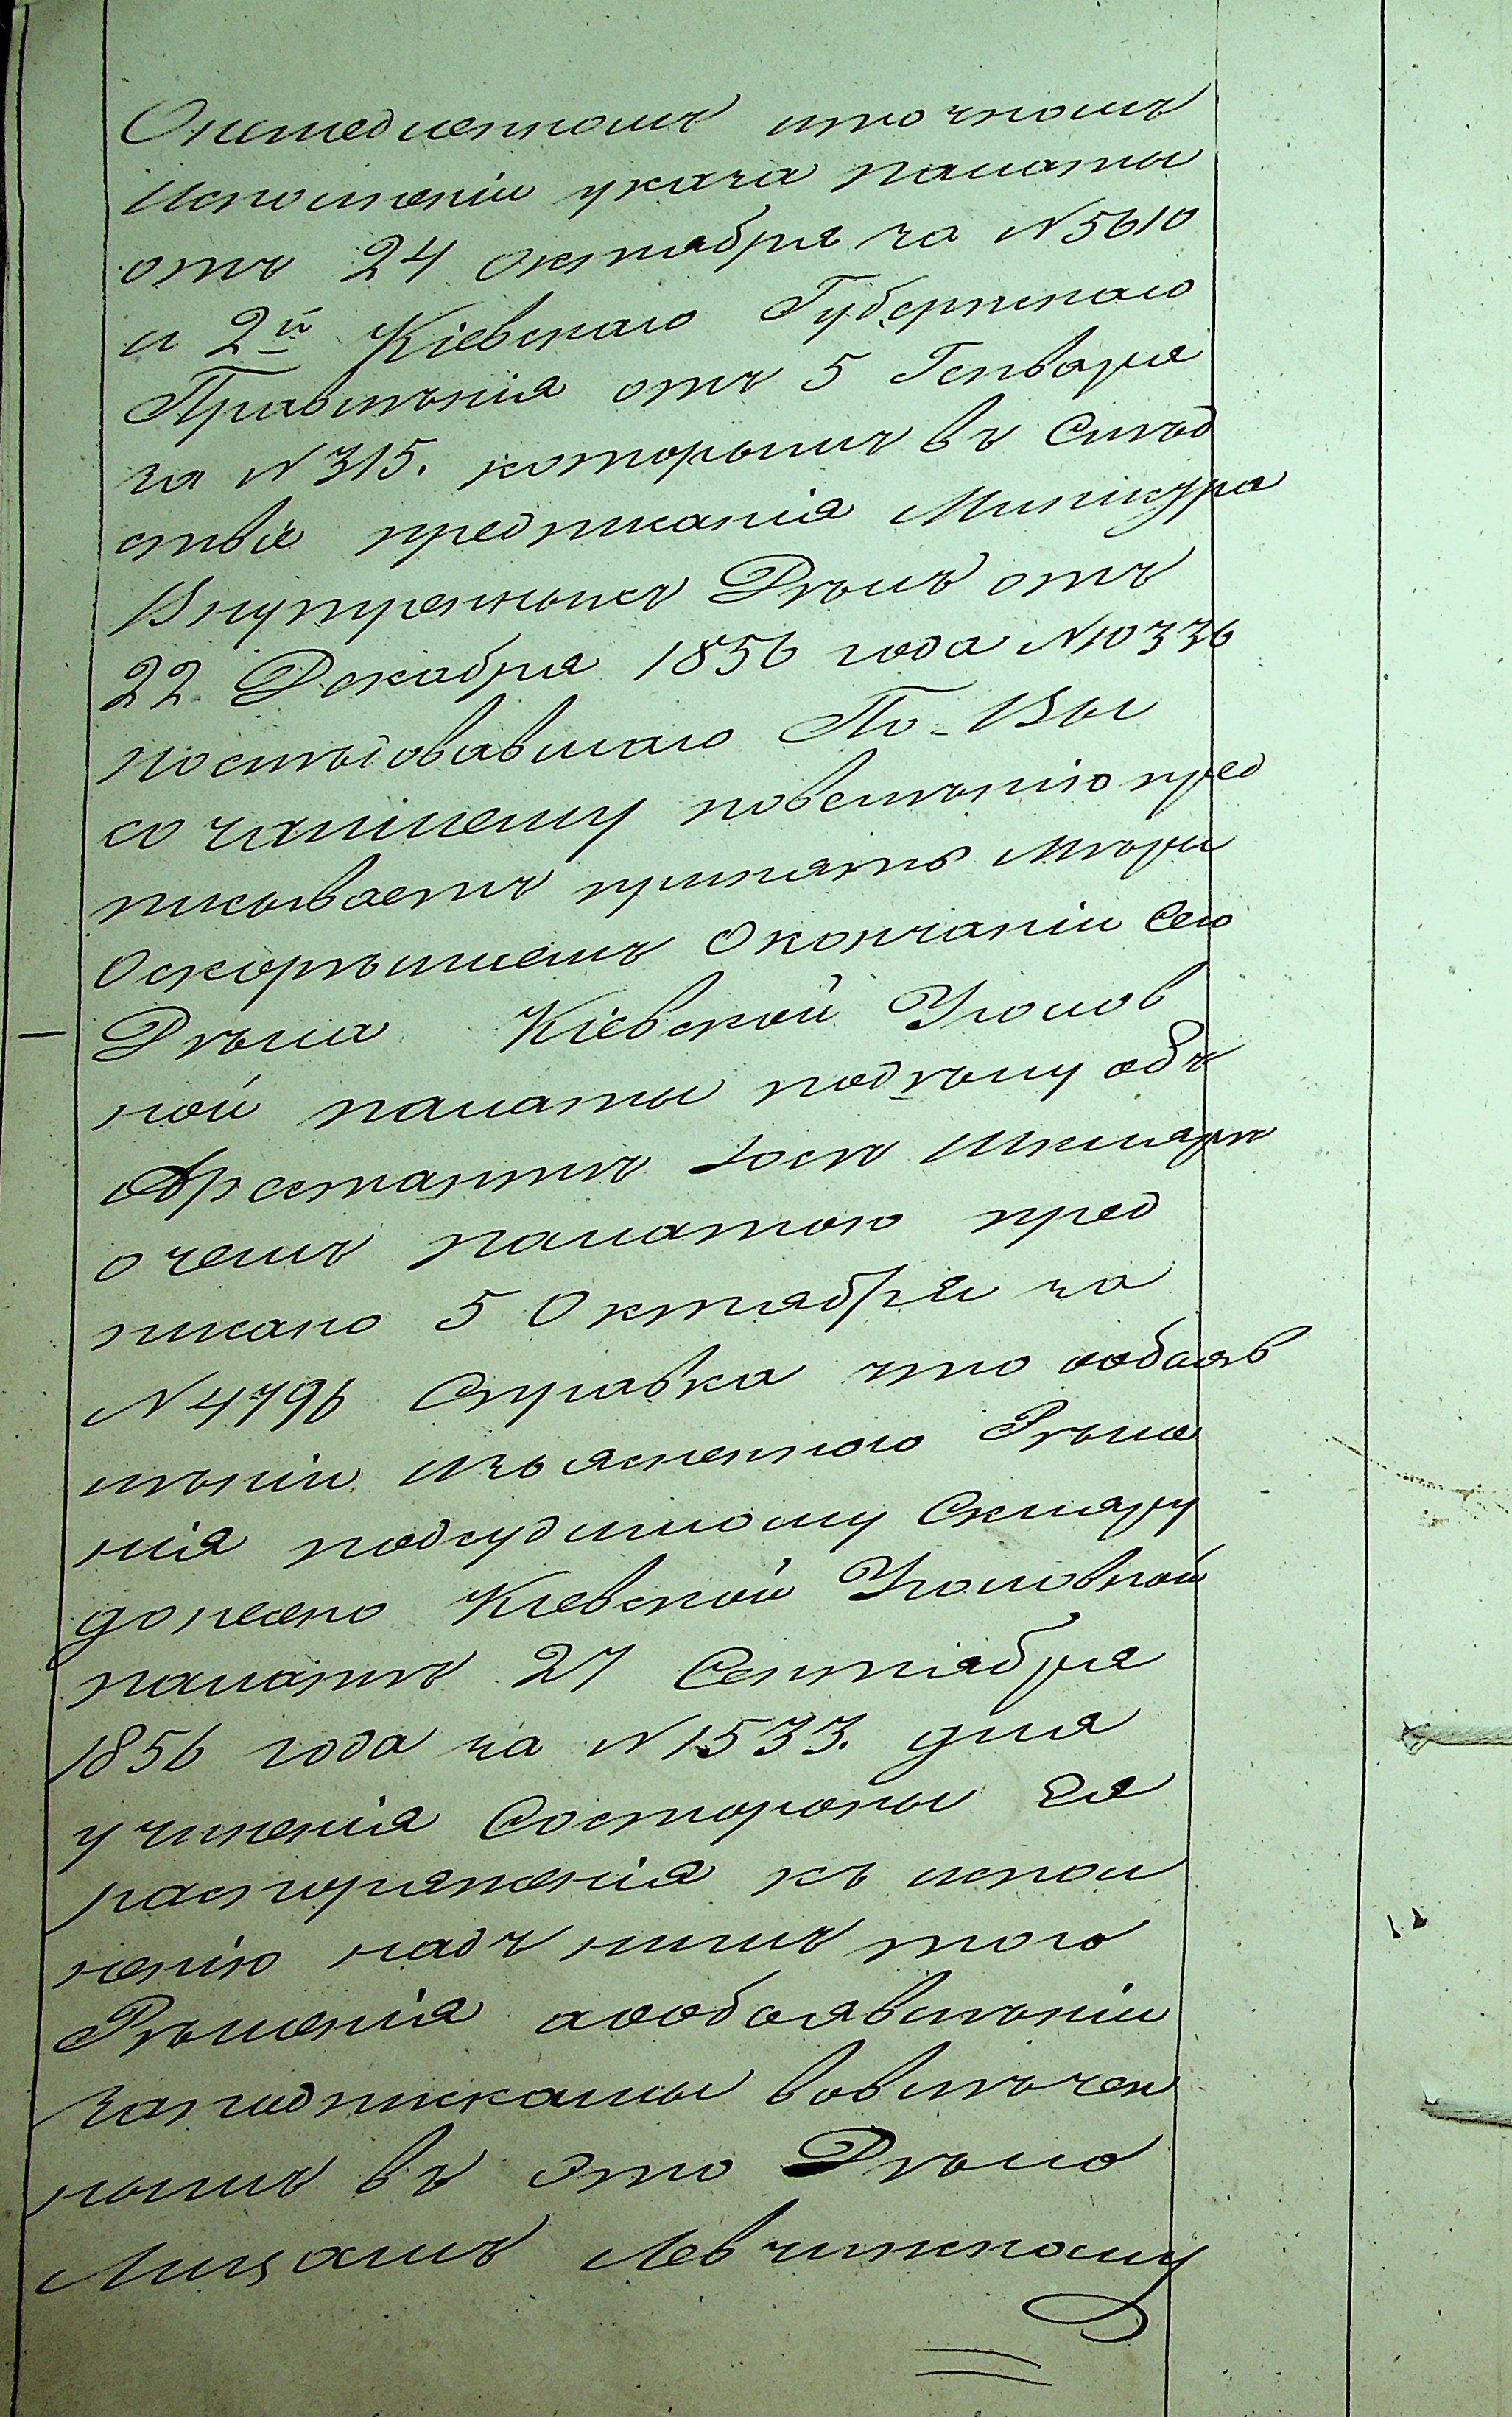 Онемедленномъ иточномъ
Исполненіи указа палаты
отъ 24 Октября за N 5610
и 2й Кіевскаго Губернскаго
Правленія отъ 5 Генваря
за N 315. которымъ въ Слѣд
ствіе предписанія Министра
Внутренныхъ Дѣлъ отъ
22 Декабря 1856 года N 10336
послѣдовавшаго По-Вы
сочайшему повелѣнію пред
писываетъ принять мѣры
Оскорѣйшемъ Окончаніи Сего
Дѣла Кіевской Уголов
ной палаты подѣлу объ
Арестантѣ Іось Шкляръ
очемъ палатою пред
писано 5 Октября за
N 4796 Справка что ообъяв
лѣніи изъясненного Рѣше
нія подсудимому Скляру
донесено Кіевской Уголовной
палатѣ 27 Сентября
1856 года за N 1533. для
учиненія Состороны ея
распоряженія къ испол
ненію надъ нимъ того
Рѣшенія аообъявлѣніи
заподписками вовлѣчен
нымъ въ Это Дѣло
Лицамъ Левчинскому